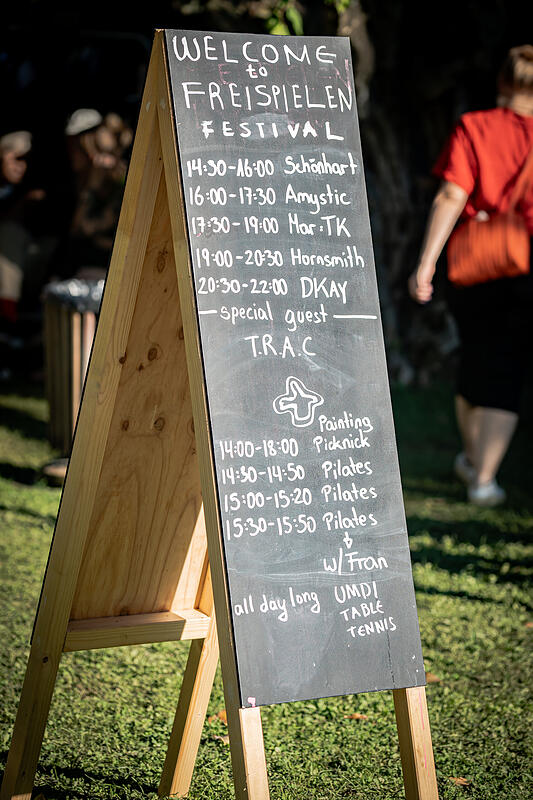 WELCOME
to
FREISPIELEN
FESTIVAL
14:30-16:00 Schönhart
16:00-17:30 Amystic
17:30-19:00 Mar:TK
19:00-20:30 Hornsmith
20:30-22:00 DKAY
special guest
T.R.A.C
Painting
14:00-18:00 Picknick
14:30-14:50 Pilates
15:00-15:20 Pilates
15:30-15:50 Pilates
w/Fran
all day long UMDI
TABLE
TENNIS